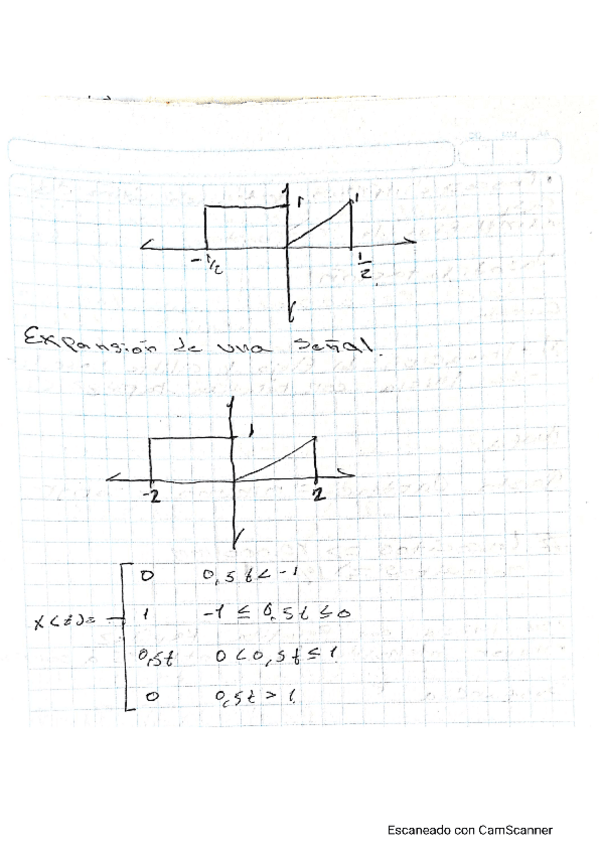 1 1
-1/2 1/2
Expansión de una señal.
1
-2 2
0 0,5t<-1
x<t>= 1 -1 ≤ 0,5t ≤ 0
0,5t 0<0,5t≤1
0 0,5t > 1
Escaneado con CamScanner